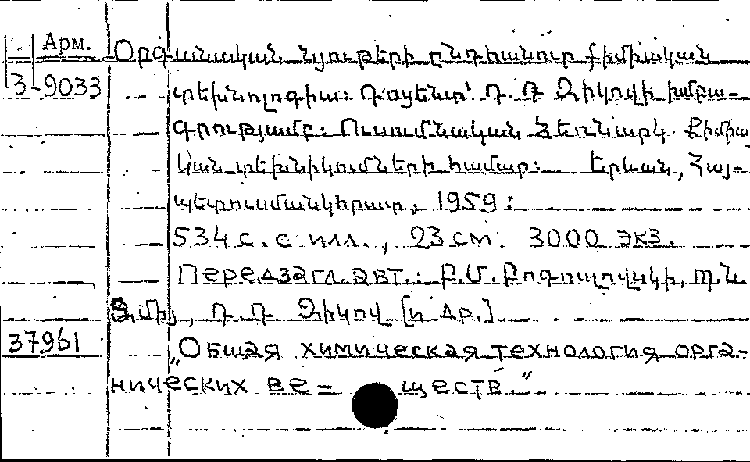 Арм. Օրգանական նյութերի ընդհանուր քիմիական
3-9033 տեխնոլոգիա: Դոցենտ՝ Դ. Դ. Զիկովի խմբա-
գրությամբ: Ուսումնական ձեռնարկ Քիմիա
կան տեխնիկումների համար: Երևան, Հայ-
պետուսմանկհրատ, 1959:
534 с. с илл., 23 см. 3000 экз.
Передзагл. авт.: Բ.Մ. Բոգուսլովսկի,
Դ. Դ. Զիկով [и др.]
37961 „Общая химическая технология орга-
нических ве- ществ."